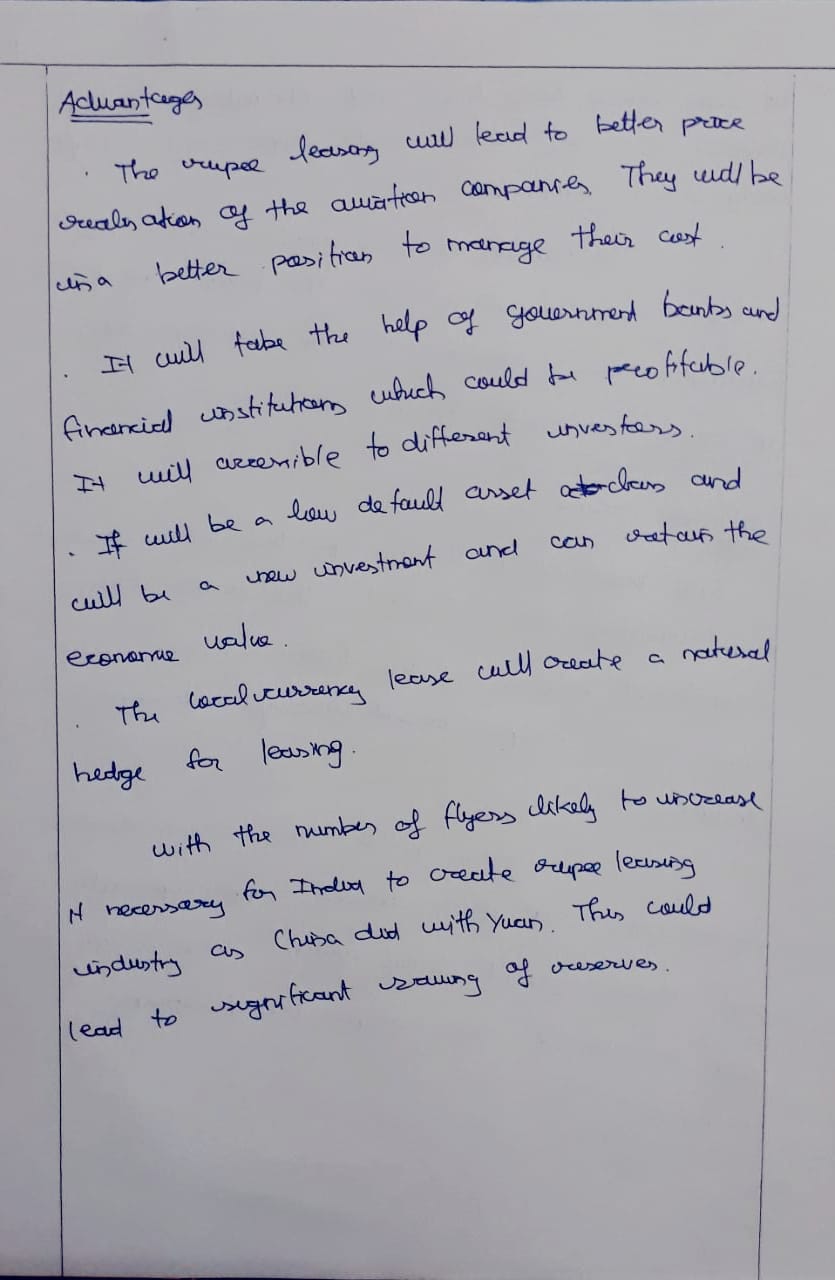 Advantages
. The rupee leasing will lead to better price
realisation of the aviation companies. They will be
in a better position to manage their cost.
. It will take the help of government banks and
financial institutions which could be profitable.
It will accessible to different investors.
. It will be a low default asset class and
will be a new investment and can retain the
economic value.
. The local currency lease will create a natural
hedge for leasing.
With the number of flyers likely to increase
it necessary for India to create rupee leasing
industry as China did with Yuan. This could
lead to significant saving of reserves.